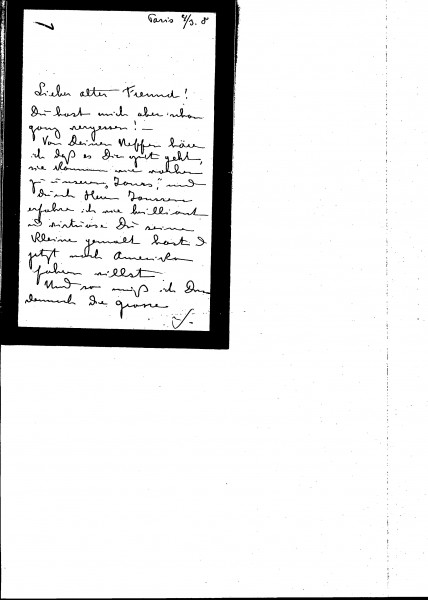 Paris 9/3. 8
Lieber alter Freund!
Du hast mich aber schon
ganz vergessen! —
Von Deinem Neffen höre
ich daß es Dir gut geht,
sie kommen nie vorher
zu unseren "Jours", und
durch Herrn Janssen
erfahre ich wie brilliant
u virtuose Du seine
Kleine gemalt hast u
jetzt nach Amerika
fahren willst
Und so muß ich Dir
demnach die grosse